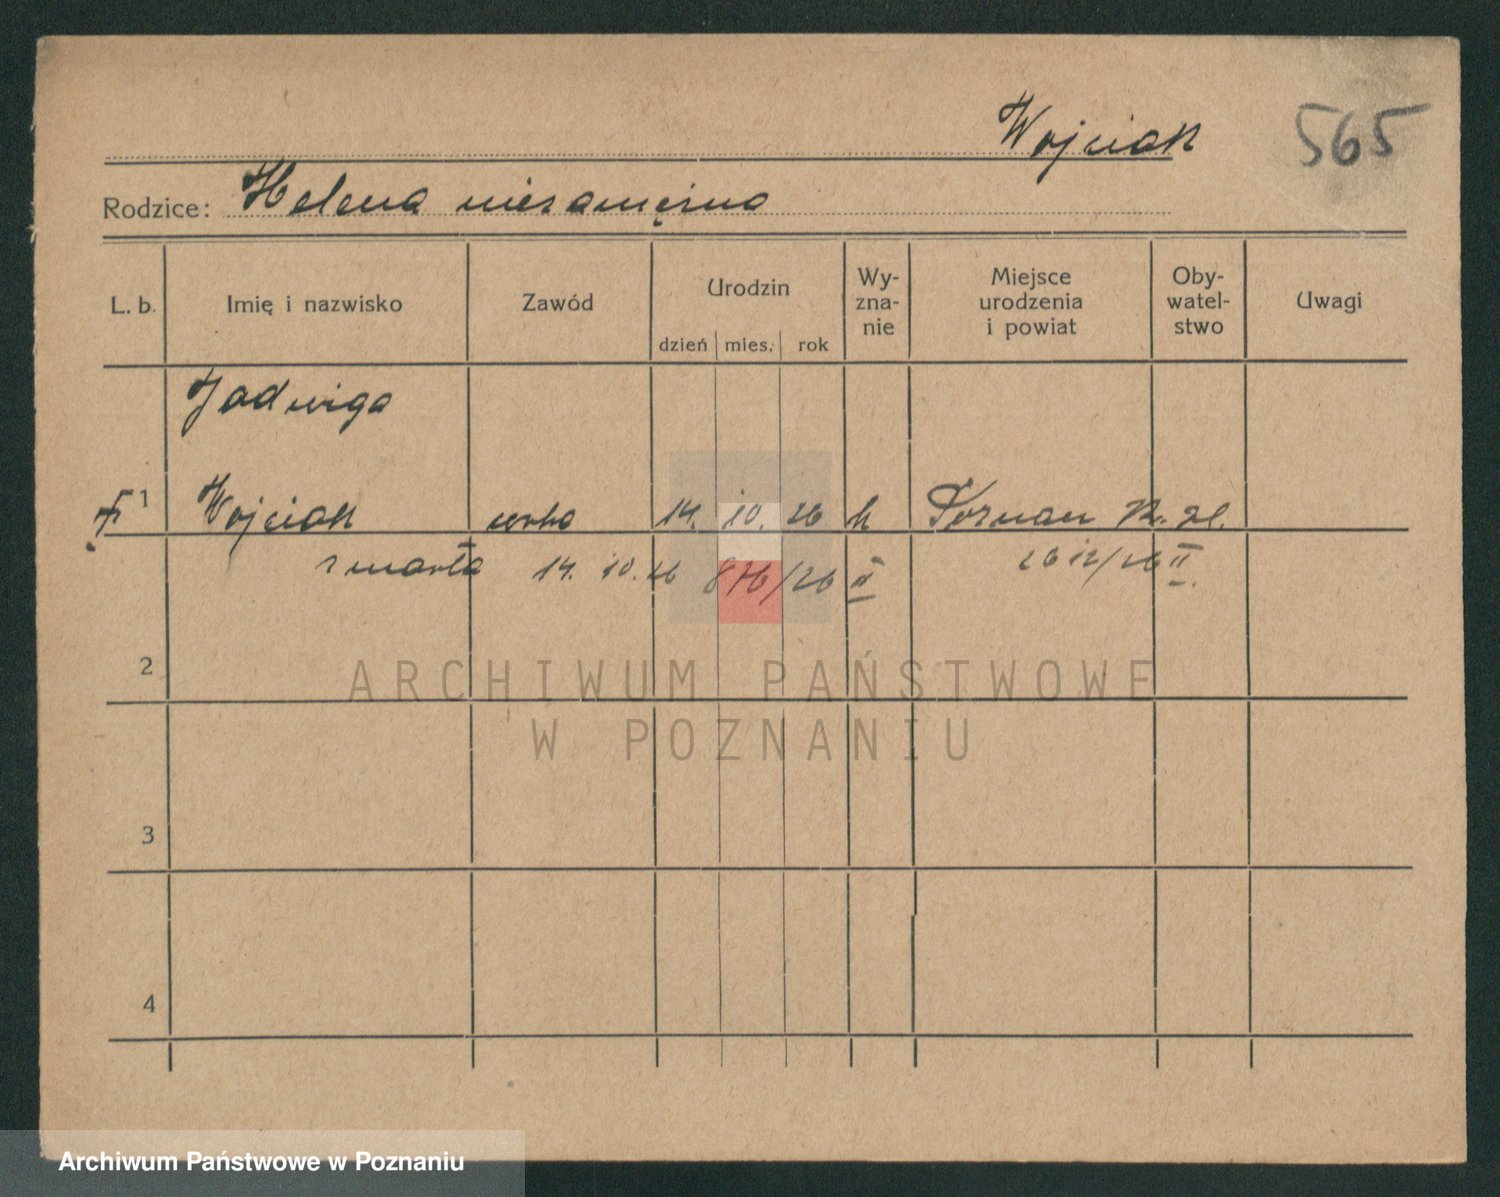 Wojciak 565
Rodzice: Helena niezamężna
L. b. Imię i nazwisko Zawód Urodzin dzień mies. rok Wy-zna-nie Miejsce urodzenia i powiat Oby-watel-stwo Uwagi
Jadwiga
1 Wojciak córka 14. 10. 26 k Poznań
zmarła 14. 10. 26 876/26 II 2612/26 II
2
ARCHIWUM PAŃSTWOWE
W POZNANIU
3
4
Archiwum Państwowe w Poznaniu